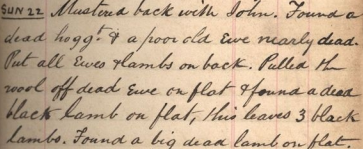 SUN 22 Mustered back with John. Found a
dead hogg^t. & a poor old Ewe nearly dead.
Put all Ewes & lambs on back. Pulled the
wool off dead Ewe on flat & found a dead
black lamb on flat, this leaves 3 black
lambs. Found a big dead lamb on flat.